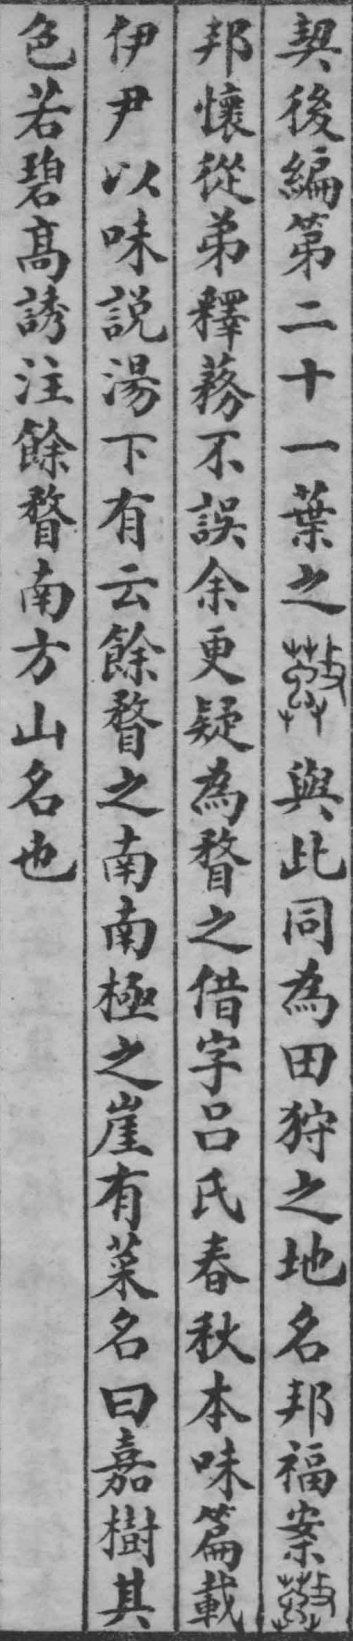 契後編第二十一葉之與此同為田狩之地名邦福案
邦懷從弟釋蓩不誤余更疑為瞀之借字呂氏春秋本味篇載
伊尹以味説湯下有云餘瞀之南南極之崖有菜名曰嘉樹其
色若碧高誘注餘瞀南方山名也